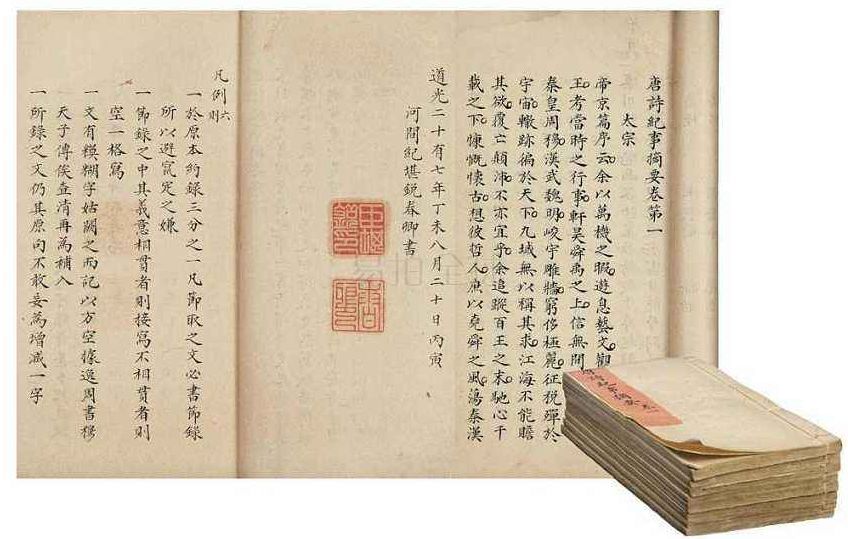 唐詩紀事摘要卷第一
太宗
帝京篇序云余以萬機之暇遊息藝文觀
王考當時之行事軒昊舜禹之上信無間
秦皇周穆漢武魏明峻宇雕牆窮侈極麗征稅殫於
宇宙轍跡徧於天下九域無以稱其求江海不能贍
其欲覆亡顛沛不亦宜乎余追蹤百王之末馳心千
載之下慷慨懷古想彼哲人庶以堯舜之風蕩秦漢
道光二十有七年丁未八月二十日丙寅
河間紀堪銳春卿書
凡例六則
一於原本約錄三分之一凡節取之文必書節錄
所以避竄定之嫌
一節錄之中其義意相貫者則接寫不相貫者則
空一格寫
一文有糢糊字姑闕之而記以方空據逸周書穆
天子傳俟查清再為補入
一所錄之文仍其原向不敢妄為增減一字
易拍全